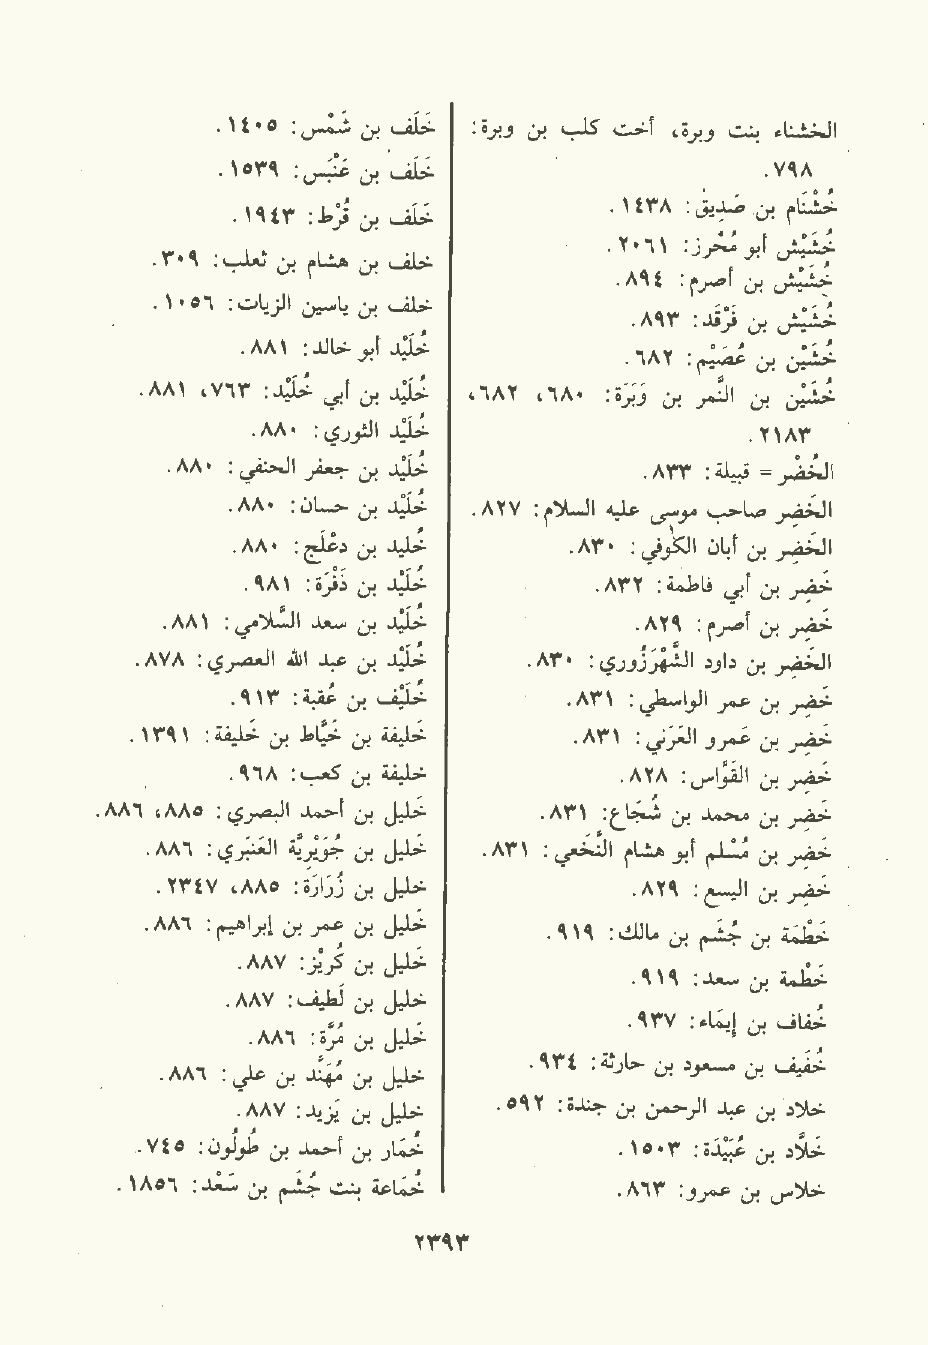 الخشناء بنت وبرة، أخت كلب بن وبرة:
٧٩٨.
خُشْنَام بن صَديق: ١٤٣٨.
خُشَيْش أبو مُحْرز: ٢٠٦١.
خُشَيْش بن أصرم: ٨٩٤.
خُشَيْش بن فَرْقَد: ٨٩٣.
خُشَيْن بن عُصَيْم: ٦٨٢.
خُشَيْن بن النَّمر بن وَبَرَة: ٦٨٠، ٦٨٢،
٢١٨٣.
الخُضْر = قبيلة: ٨٣٣.
الخَضِر صاحب موسى عليه السلام: ٨٢٧.
الخَضِر بن أبان الكُوفي: ٨٣٠.
خَضِر بن أبي فاطمة: ٨٣٢.
خَضِر بن أصرم: ٨٢٩.
الخَضِر بن داود الشَّهْرَزُوري: ٨٣٠.
خَضِر بن عمر الواسطي: ٨٣١.
خَضِر بن عَمرو العَرَني: ٨٣١.
خَضِر بن القَوَّاس: ٨٢٨.
خَضِر بن محمد بن شُجَاع: ٨٣١.
خَضِر بن مُسْلم أبو هشام النَّخَعي: ٨٣١.
خَضِر بن اليسع: ٨٢٩.
خَطْمَة بن جُشَم بن مالك: ٩١٩.
خَطْمة بن سعد: ٩١٩.
خُفاف بن إيمَاء: ٩٣٧.
خُفَيف بن مسعود بن حارثة: ٩٣٤.
خلاد بن عبد الرحمن بن جندة: ٥٩٢.
خَلَّاد بن عُبَيْدَة: ١٥٠٣.
خلاس بن عمرو: ٨٦٣.
خَلَف بن شَمْس: ١٤٠٥.
خَلَف بن عَنْبَس: ١٥٣٩.
خَلَف بن قُرْط: ١٩٤٣.
خلف بن هشام بن ثعلب: ٣٠٩.
خلف بن ياسين الزيات: ١٠٥٦.
خُلَيْد أبو خالد: ٨٨١.
خُلَيْد بن أبي خُلَيْد: ٧٦٣، ٨٨١.
خُلَيْد الثوري: ٨٨٠.
خُلَيْد بن جعفر الحنفي: ٨٨٠.
خُلَيْد بن حسان: ٨٨٠.
خُليد بن دَعْلَج: ٨٨٠.
خُلَيْد بن ذَفْرَة: ٩٨١.
خُلَيْد بن سعد السَّلامي: ٨٨١.
خُلَيْد بن عبد الله العصري: ٨٧٨.
خُلَيْف بن عُقبة: ٩١٣.
خَليفة بن خَيَّاط بن خَليفة: ١٣٩١.
خليفة بن كعب: ٩٦٨.
خَليل بن أحمد البصري: ٨٨٥، ٨٨٦.
خَليل بن جُوَيْرِيَّة العَنبَري: ٨٨٦.
خليل بن زُرَارَة: ٨٨٥، ٢٣٤٧.
خَليل بن عمر بن إبراهيم: ٨٨٦.
خَليل بن كُرَيْز: ٨٨٧.
خليل بن لَطيف: ٨٨٧.
خَليل بن مُرَّة: ٨٨٦.
خليل بن مُهَنَّد بن علي: ٨٨٦.
خليل بن يَزيد: ٨٨٧.
خُمَار بن أحمد بن طُولُون: ٧٤٥.
خُمَاعة بنت جُشَم بن سَعْد: ١٨٥٦.
٢٣٩٣